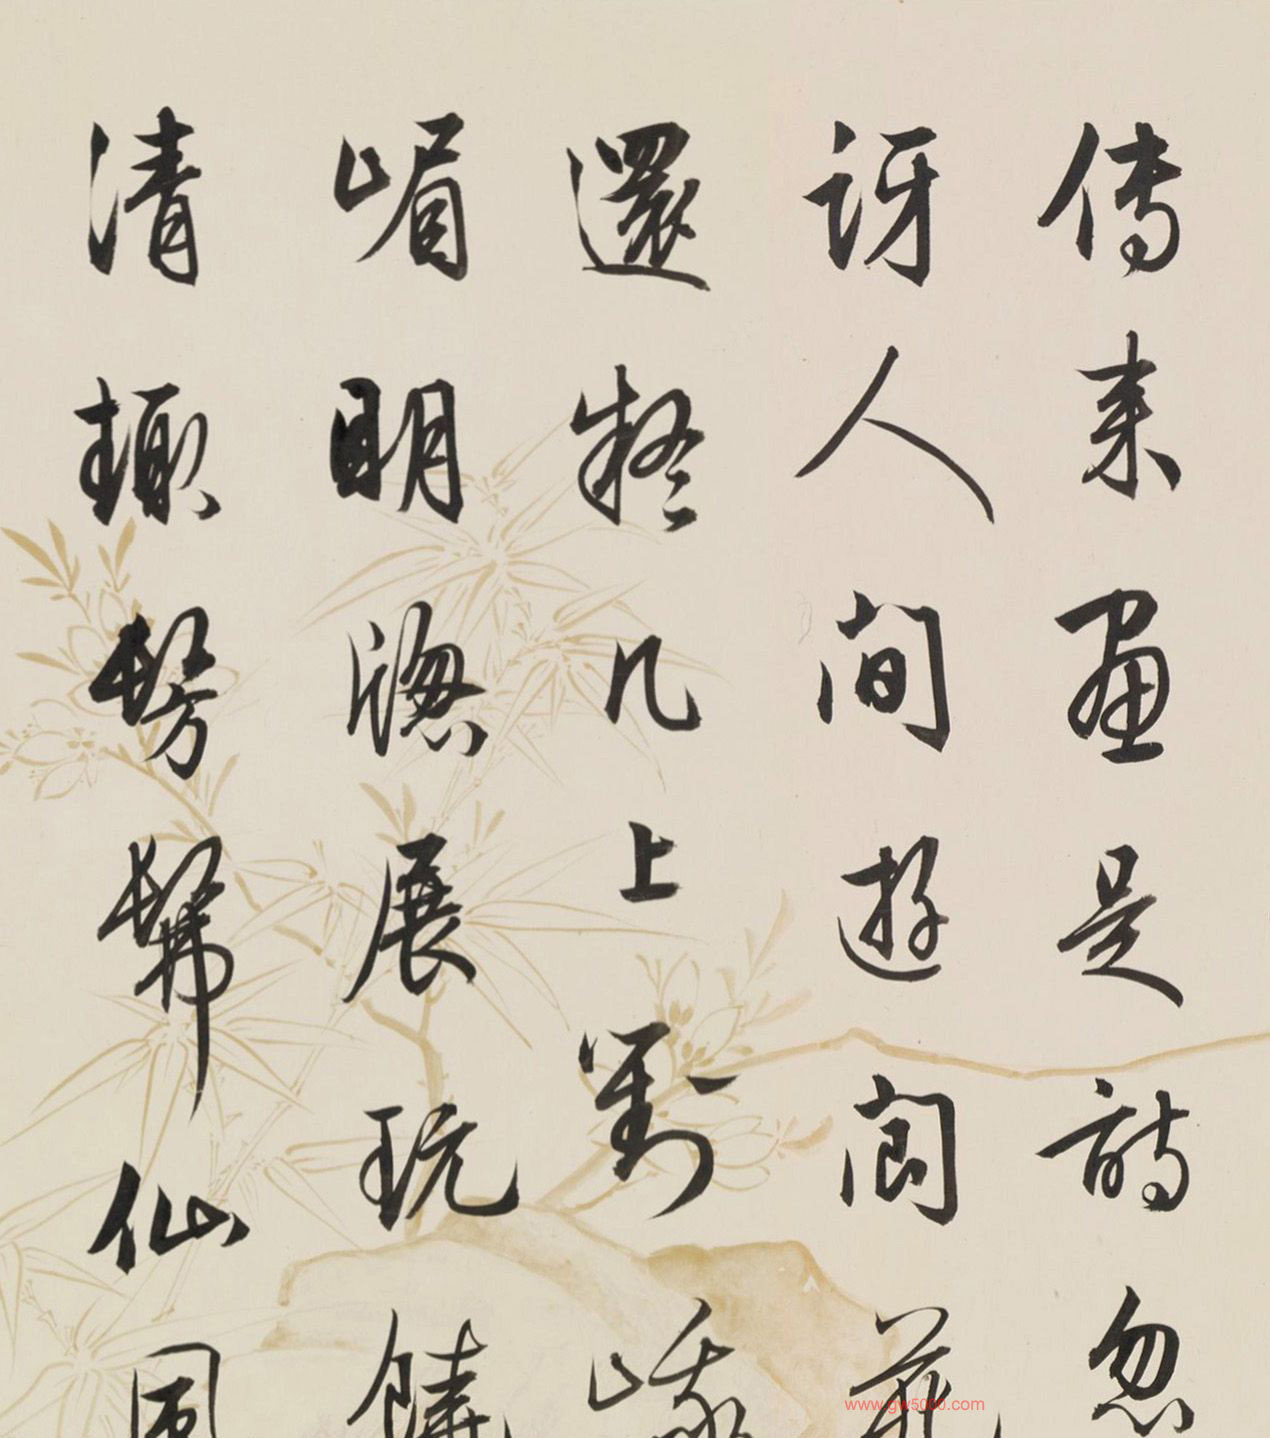 傳來畫是詩忽
訝人間遊閬苑
還凝几上對峨
嵋明牕展玩饒
清趣髣髴仙風
www.gw5000.com